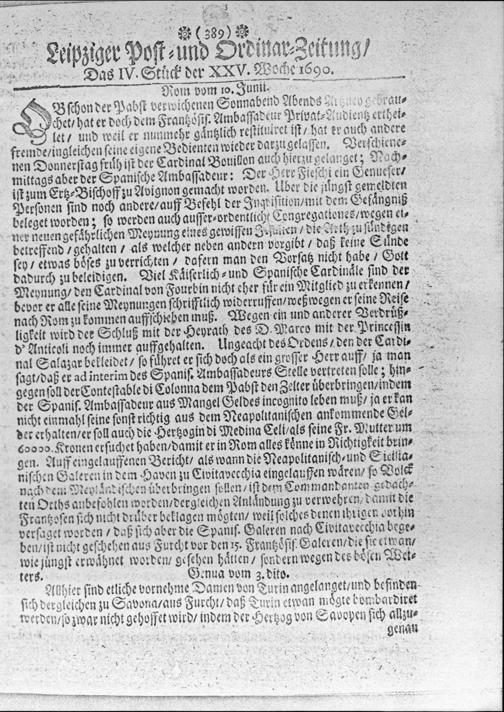 (389)
Leipziger Post-und Ordinar-Zeitung/
Das IV. Stück der XXV. Woche 1690.
Rom vom 10. Junii.
OB schon der Pabst verwichenen Sonnabend Abends Artzney gebrau-
chet/ hat er doch dem Frantzösis. Ambassadeur Privat-Audientz erthei-
let/ und weil er nunmehr gäntzlich restituiret ist/ hat er auch andere
fremde/ingleichen seine eigene Bedienten wieder darzu gelassen. Verschiene-
nen Donnerstag früh ist der Cardinal Bouillon auch hierzu gelanget; Nach-
mittags aber der Spanische Ambassadeur: Der Herr Fieschi ein Genueser/
ist zum Ertz-Bischoff zu Avignon gemacht worden. Uber die jüngst gemeldten
Personen sind noch andere/auff Befehl der Inquisition/mit dem Gefängniß
beleget worden; so werden auch ausser-ordentliche Congregationes/wegen ei-
ner neuen gefährlichen Meynung eines gewissen Jesuiten/ die Arth zu sündigen
betreffend/ gehalten/ als welcher neben andern vorgibt/ daß keine Sünde
sey/ etwas böses zu verrichten/ dafern man den Vorsatz nicht habe/ Gott
dadurch zu beleidigen. Viel Käiserlich- und Spanische Cardinäle sind der
Meynung/ den Cardinal von Fourbin nicht eher für ein Mitglied zu erkennen/
bevor er alle seine Meynungen schrifftlich widerruffen/weßwegen er seine Reise
nach Rom zu kommen auffschieben muß. Wegen ein und anderer Verdrüß-
ligkeit wird der Schluß mit der Heyrath des D. Marco mit der Princessin
d'Anticoli noch immer auffgehalten. Ungeacht des Ordens/ den der Cardi-
nal Salazar bekleidet/ so führet er sich doch als ein grosser Herr auff/ ja man
sagt/daß er ad interim des Spanis. Ambassadeurs Stelle vertreten solle; hin-
gegen soll der Contestabile di Colonna dem Pabst den Zelter überbringen/indem
der Spanis. Ambassadeur aus Mangel Geldes incognito leben muß/ ja er kan
nicht einmahl seine sonst richtig aus dem Neapolitanischen ankommende Gel-
der erhalten/er soll auch die Hertzogin di Medina Celi/als seine Fr. Mutter um
60000. Kronen ersuchet haben/damit er in Rom alles könne in Richtigkeit brin-
gen. Auff eingelauffenen Bericht/ als wann die Neapolitanisch- und Sicilia-
nischen Galeren in dem Haven zu Civitavecchia eingelauffen wären/ so Volck
nach dem Meyländischen überbringen sollen/ ist dem Commandanten gedach-
ten Orths anbefohlen worden/dergleichen Anländung zu verwehren/ damit die
Frantzosen sich nicht drüber beklagen mögten/ weil solches denen ihrigen vorhin
versaget worden/ daß sich aber die Spanis. Galeren nach Civitavecchia bege-
ben/ist nicht geschehen aus Furcht vor den 15. Frantzösis. Galeren/die sie etwan/
wie jüngst erwähnet worden/ gesehen hätten/ sondern wegen des bösen Wet-
ters. Genua vom 3. dito.
Allhier sind etliche vornehme Damen von Turin angelanget/und befinden
sich dergleichen zu Savona/aus Furcht/ daß Turin etwan mögte bombardiret
werden/so zwar nicht gehoffet wird/ indem der Hertzog von Savoyen sich allzu-
genau